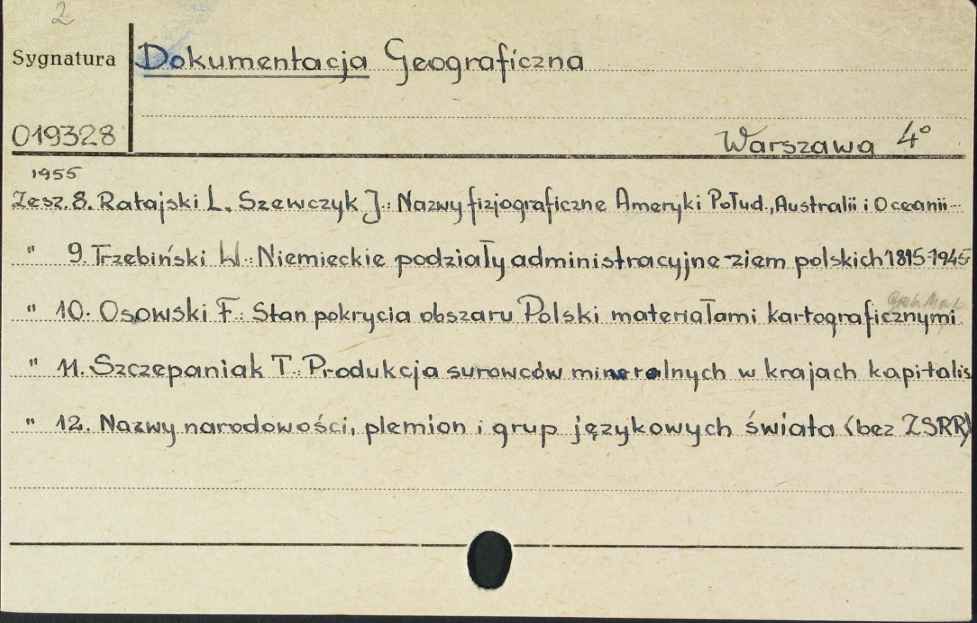 2
Sygnatura Dokumentacja Geograficzna
019328 Warszawa 4°
1955
Zesz. 8. Ratajski L. Szewczyk J.: Nazwy fizjograficzne Ameryki Połud., Australii i Oceanii
" 9. Trzebiński W.: Niemieckie podziały administracyjne ziem polskich 1815-1945
" 10. Osowski F.: Stan pokrycia obszaru Polski materiałami kartograficznymi
" 11. Szczepaniak T.: Produkcja surowców mineralnych w krajach kapitalis
" 12. Nazwy narodowości, plemion i grup językowych świata (bez ZSRR)